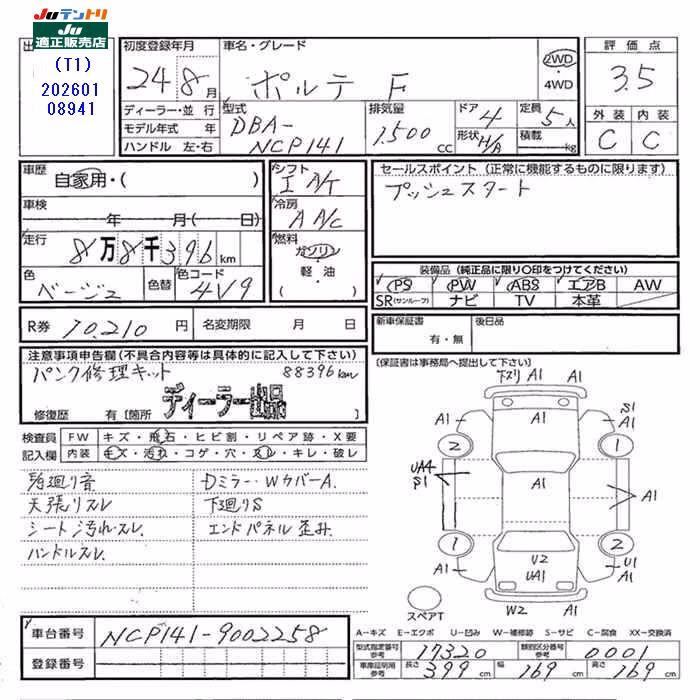 JUテントリ
JU
適正販売店
(T1)
202601
08941
初度登録年月
24 8 月
ディーラー・並行
モデル年式 年
ハンドル 左・右
車名・グレード
ポルテ F
2WD
・
4WD
型式
DBA-
NCP141
排気量
1500
cc
ドア 4
形状 H/A
定員 5人
積載 kg
評価点
3.5
外装 内装
C C
車歴
自家用・( )
車検
年 月 ( 日)
走行
8万8千396 km
色
ベージュ
色替
色コード
4V9
シフト
I A/T
冷房
A A/C
燃料
ガソリン
・
軽・油
( )
セールスポイント (正常に機能するものに限ります)
プッシュスタート
装備品 (純正品に限り〇印をつけてください)
PS PW ABS エアB AW
SR(サンルーフ) ナビ TV 本革
R券 10,210 円
名変期限 月 日
新車保証書
有・無
後日品
(保証書は事務局へ提出して下さい)
注意事項申告欄(不具合内容等は具体的に記入して下さい)
パンク修理キット 88396km
ディーラー出品
修復歴 有 [箇所 ]
検査員
記入欄
FW キズ・飛石・ヒビ割・リペア跡・X要
内装 キズ・汚れ・コゲ・穴・スレ・キレ・破レ
天張リスレ
シート汚れスレ
ハンドルスレ
Dミラー・WカバーA.
下廻りS
エンドパネル歪み
下ズリ A1
A1
A1
A1
S1
A1
2
1
UA4
S1
A1
A1
1
2
A1
U2
UA1
U1
A1
W2 A1
スペアT
車台番号 NCP141-9002258
登録番号
A-キズ E-エクボ U-凹み W-補修跡 S-サビ C-腐食 XX-交換済
型式指定番号
参考
17320
類別区分番号
参考
0001
車庫証明用
参考
長さ 399 cm
幅 169 cm
高さ 169 cm